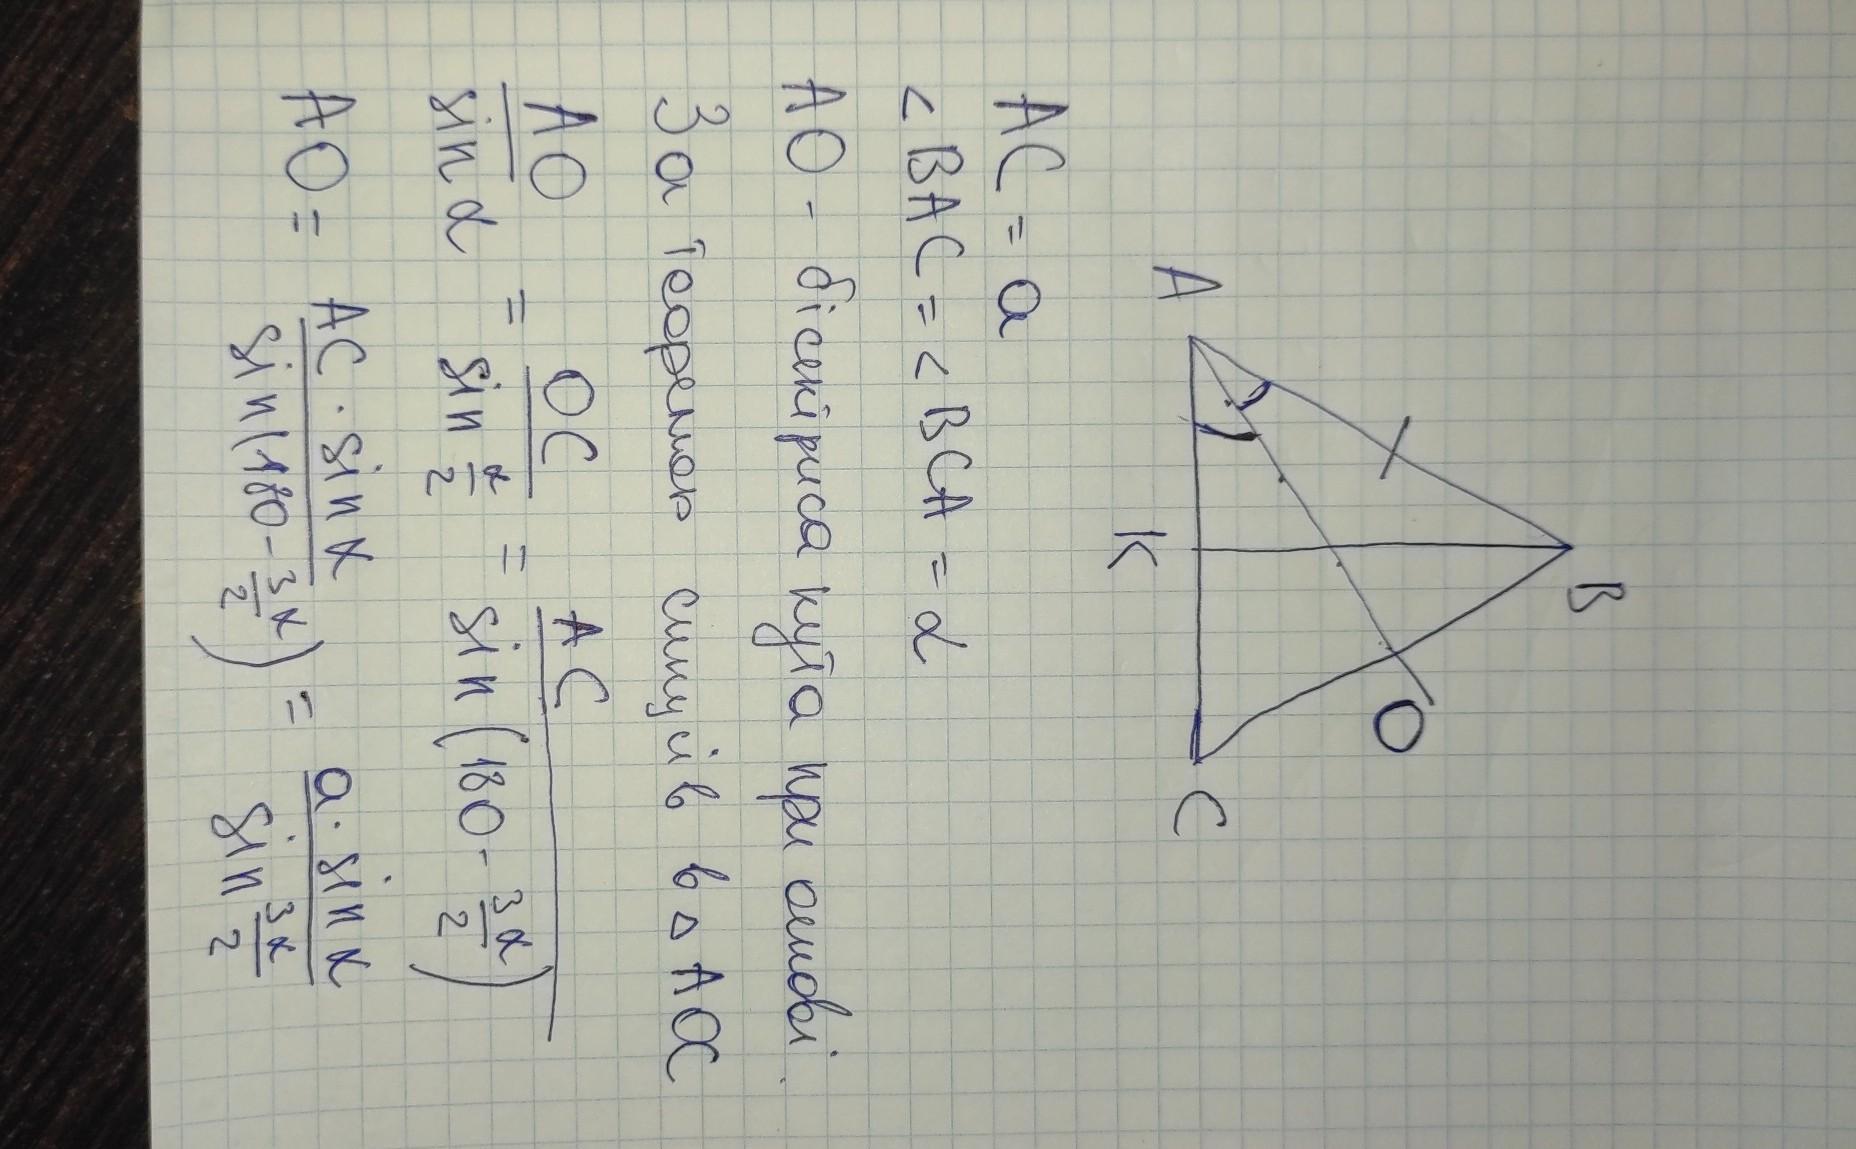 B
O
A
K
C
AC = a
<BAC = <BCA = α
AO - бісектриса кута при основі.
За теоремою синусів в △ AOC
AO/sin α = OC/sin α/2 = AC/sin(180 - 3α/2)
AO = AC · sin α/sin(180 - 3α/2) = a · sin α/sin 3α/2